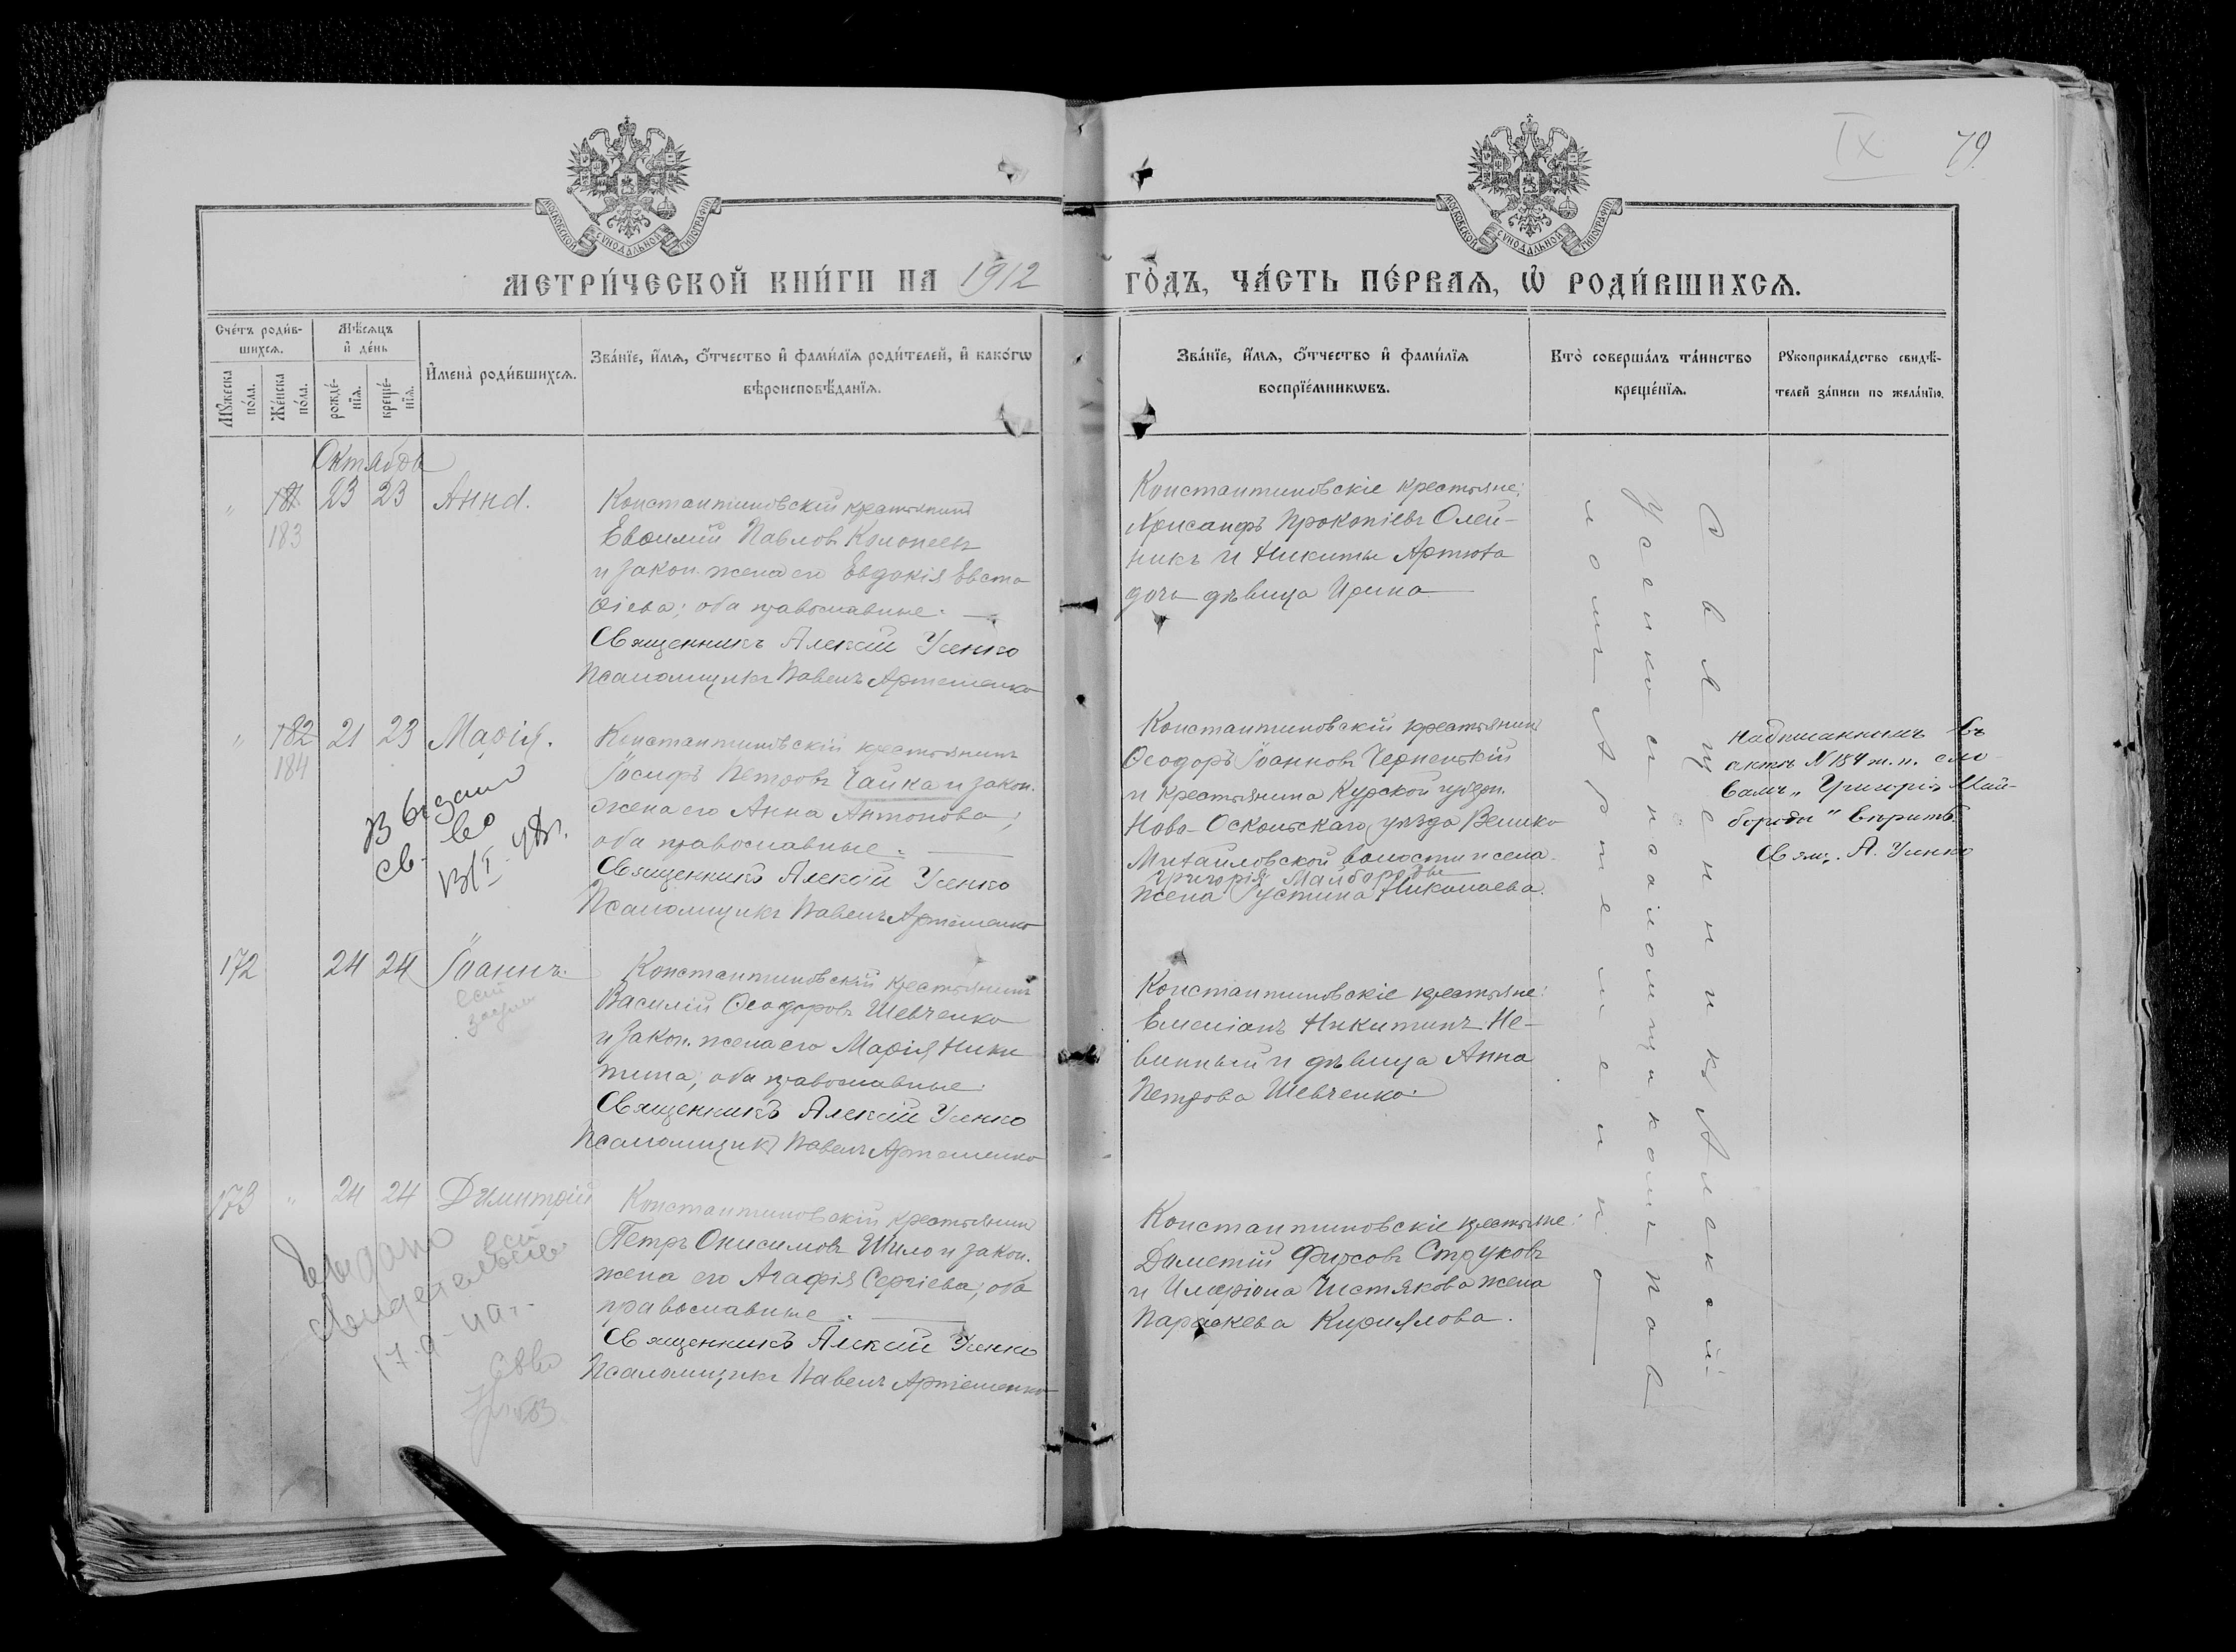 IX 79
МОСКОВСКОЙ СѴНОДАЛЬНОЙ ТИПОГРАФІИ
МОСКОВСКОЙ СѴНОДАЛЬНОЙ ТИПОГРАФІИ
МЕТРИ́ЧЕСКОЙ КНИ́ГИ НА 1912 ГО́ДЪ, ЧА́СТЬ ПЕ́РВАѦ, Ѡ РОДИ́ВШИХСѦ.
Сче́тъ роди́вшихсѧ.
Мꙋ́жеска по́ла.
Же́нска по́ла.
Мѣ́сѧцъ и҆ де́нь
рожде́нїѧ.
креще́нїѧ.
И҆мена̀ роди́вшихсѧ.
Зва́нїе, и҆́мѧ, ѻ҆́тчество и҆ фами́лїѧ роди́телей, и҆ како́гѡ
вѣроисповѣ́данїѧ.
Зва́нїе, и҆́мѧ, ѻ҆́тчество и҆ фами́лїѧ
воспрїе́мникѡвъ.
Кто̀ соверша́лъ та́инство
креще́нїѧ.
Рꙋкоприкла́дство свидѣ́-
телей за́писи по жела́нїю.
Октябрь
" 181 23 23 Анна.
183
Константиновскій крестьянинъ
Евѳимій Павловъ
и закон. жена его Евдокія Евста
ѳіева; оба православные.
Священникъ Алексій Усенко
Псаломщикъ Павелъ Артеменко
Константиновскіе крестьяне:
Хрисанфъ Прокопіевъ Олей-
никъ и Никиты Артюха
дочь дѣвица Ирина
" 182 21 23 Марія.
184
Выдано
св-во
Константиновскій крестьянинъ
Іосифъ Петровъ Чайка и закон.
жена его Анна Антонова;
оба православные.
Священникъ Алексій Усенко
Псаломщикъ Павелъ Артеменко
Константиновскій крестьянинъ
Ѳеодоръ Іоанновъ Черненькій
и крестьянина Курской губерн.
Ново-Оскольскаго уѣзда Велико
Михайловской волости и села
Григорія Майбороды
жена Іустина Николаева.
Надписаннымъ въ
актѣ № 184 т. п. сло
вамъ "Григорія Май-
бороды" вѣрить
Свящ. А. Усенко
172 24 24 Іоаннъ.
Константиновскій крестьянинъ
Василій Ѳеодоровъ Шевченко
и закон. жена его Марія Ники
тина; оба православные.
Священникъ Алексій Усенко
Псаломщикъ Павелъ Артеменко
Константиновскіе крестьяне:
Емеліанъ Никитинъ Не-
винный и дѣвица Анна
Петрова Шевченко.
173 " 24 24 Димитрій
Выдано
свидетельство
Константиновскій крестьянинъ
Петръ Онисимовъ Шило и закон.
жена его Агафія Сергіева; оба
православные.
Священникъ Алексій Усенко
Псаломщикъ Павелъ Артеменко
Константиновскіе крестьяне:
Дометій Фирсовъ Струковъ
и Иларіона Чистякова жена
Параскева Кириллова.
Священникъ Алексій
Усенко съ псаломщикомъ Пав
ломъ Артеменко